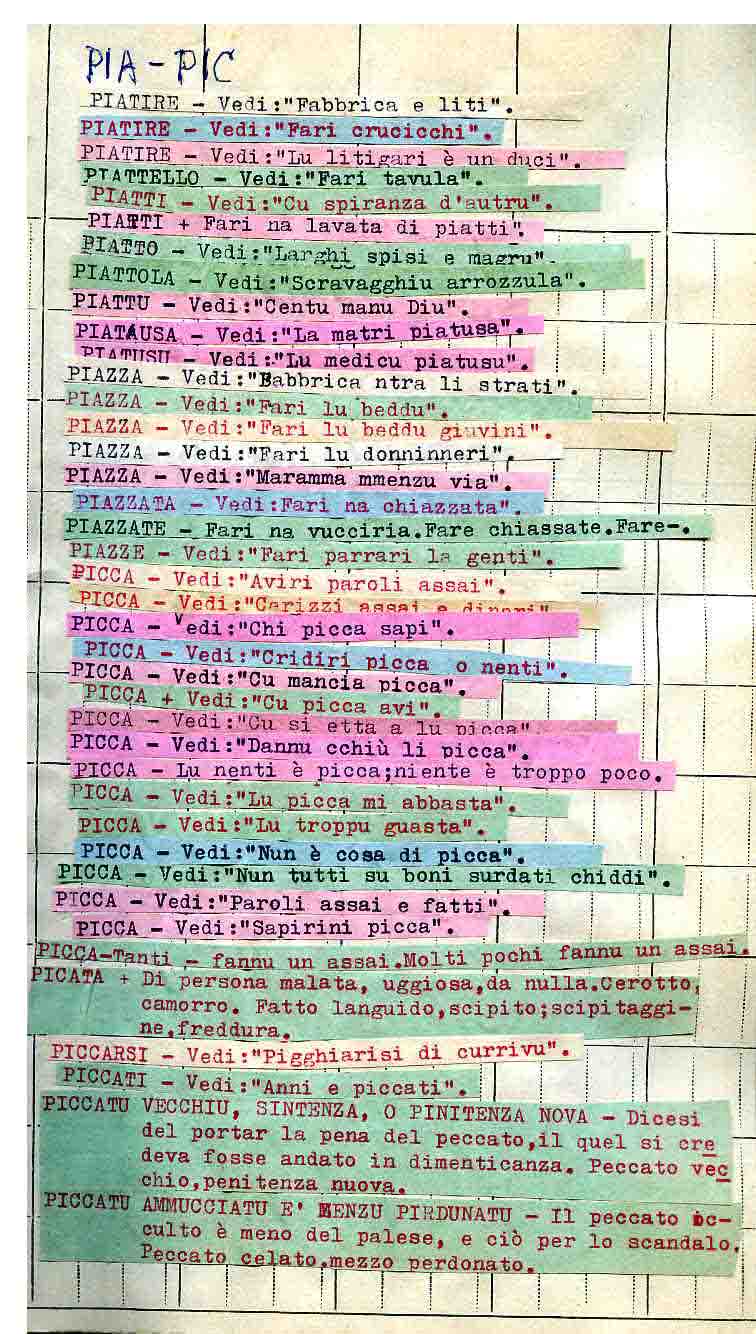 PIA-PIC
PIATIRE - Vedi:"Fabbrica e liti".
PIATIRE - Vedi:"Fari crucicchi".
PIATIRE - Vedi:"Lu litigari è un duci".
PIATTELLO - Vedi:"Fari tavula".
PIATTI - Vedi:"Cu spiranza d'autru".
PIATTI + Fari na lavata di piatti".
PIATTO - Vedi:"Larghi spisi e magru".
PIATTOLA - Vedi:"Scravagghiu arrozzula".
PIATTU - Vedi:"Centu manu Diu".
PIATAUSA - Vedi:"La matri piatusa".
PIATUSU - Vedi:"Lu medicu piatusu".
PIAZZA - Vedi:"Babbrica ntra li strati".
PIAZZA - Vedi:"Fari lu beddu".
PIAZZA - Vedi:"Fari lu beddu giuvini".
PIAZZA - Vedi:"Fari lu donninneri".
PIAZZA - Vedi:"Maramma mmenzu via".
PIAZZATA - Vedi:Fari na chiazzata".
PIAZZATE - Fari na vucciria.Fare chiassate.Fare-.
PIAZZE - Vedi:"Fari parrari la genti".
PICCA - Vedi:"Aviri paroli assai".
PICCA - Vedi:"Carizzi assai e dinari"
PICCA - Vedi:"Chi picca sapi".
PICCA - Vedi:"Cridiri picca o nenti".
PICCA - Vedi:"Cu mancia picca".
PICCA + Vedi:"Cu picca avi".
PICCA - Vedi:"Cu si etta a lu picca".
PICCA - Vedi:"Dannu cchiù li picca".
PICCA - Lu nenti è picca;niente è troppo poco.
PICCA - Vedi:"Lu picca mi abbasta".
PICCA - Vedi:"Lu troppu guasta".
PICCA - Vedi:"Nun è cosa di picca".
PICCA - Vedi:"Nun tutti su boni surdati chiddi".
PICCA - Vedi:"Paroli assai e fatti".
PICCA - Vedi:"Sapirini picca".
PICCA-Tanti - fannu un assai.Molti pochi fannu un assai.
PICATA + Di persona malata, uggiosa,da nulla.Cerotto,
camorro. Fatto languido,scipito;scipitaggi-
ne,freddura.
PICCARSI - Vedi:"Pigghiarisi di currivu".
PICCATI - Vedi:"Anni e piccati".
PICCATU VECCHIU, SINTENZA, O PINITENZA NOVA - Dicesi
del portar la pena del peccato,il quel si cre
deva fosse andato in dimenticanza. Peccato vec
chio,penitenza nuova.
PICCATU AMMUCCIATU E' MENZU PIRDUNATU - Il peccato oc-
culto è meno del palese, e ciò per lo scandalo.
Peccato celato,mezzo perdonato.